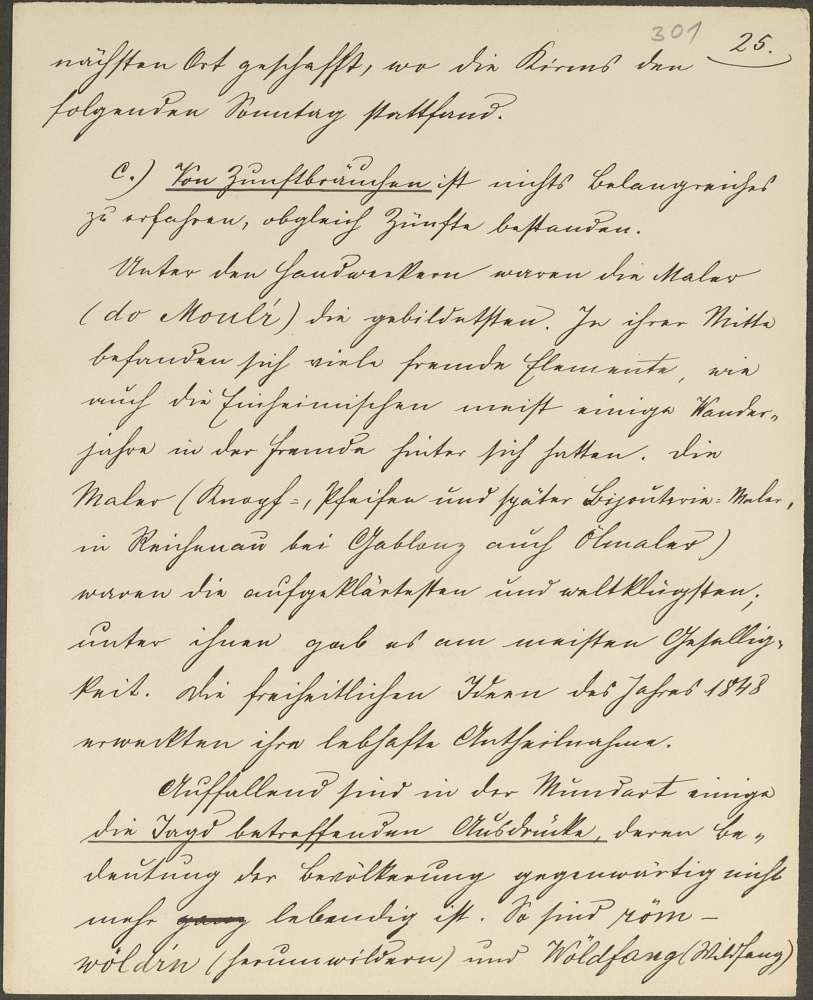 301 25.
nächsten Ort geschafft, wo die Kirms den
folgenden Sonntag stattfand.
c.) Von Zunftbräuchen ist nichts Belangreiches
zu erfahren, obgleich Zünfte bestanden.
Unter den Handwerkern waren die Maler
(do Moulr) die gebildetsten. In ihrer Mitte
befanden sich viele fremde Elemente, wie
auch die Einheimischen meist einige Wander-
jahre in der Fremde hinter sich hatten. Die
Maler (Knopf=, Pfeifen und später Bijouterie=Maler,
in Reichenau bei Gablonz auch Ölmaler)
waren die aufgeklärtesten und weltklügsten;
unter ihnen gab es am meisten Gesellig-
keit. Die freiheitlichen Ideen des Jahres 1848
erweckten ihre lebhafte Antheilnahme.
Auffallend sind in der Mundart einige
die Jagd betreffenden Ausdrücke, deren Be-
deutung der Bevölkerung gegenwärtig nicht
mehr ganz lebendig ist. So sind röm-
wöldrn (herumwildern) und Wöldfang (Wildfang)